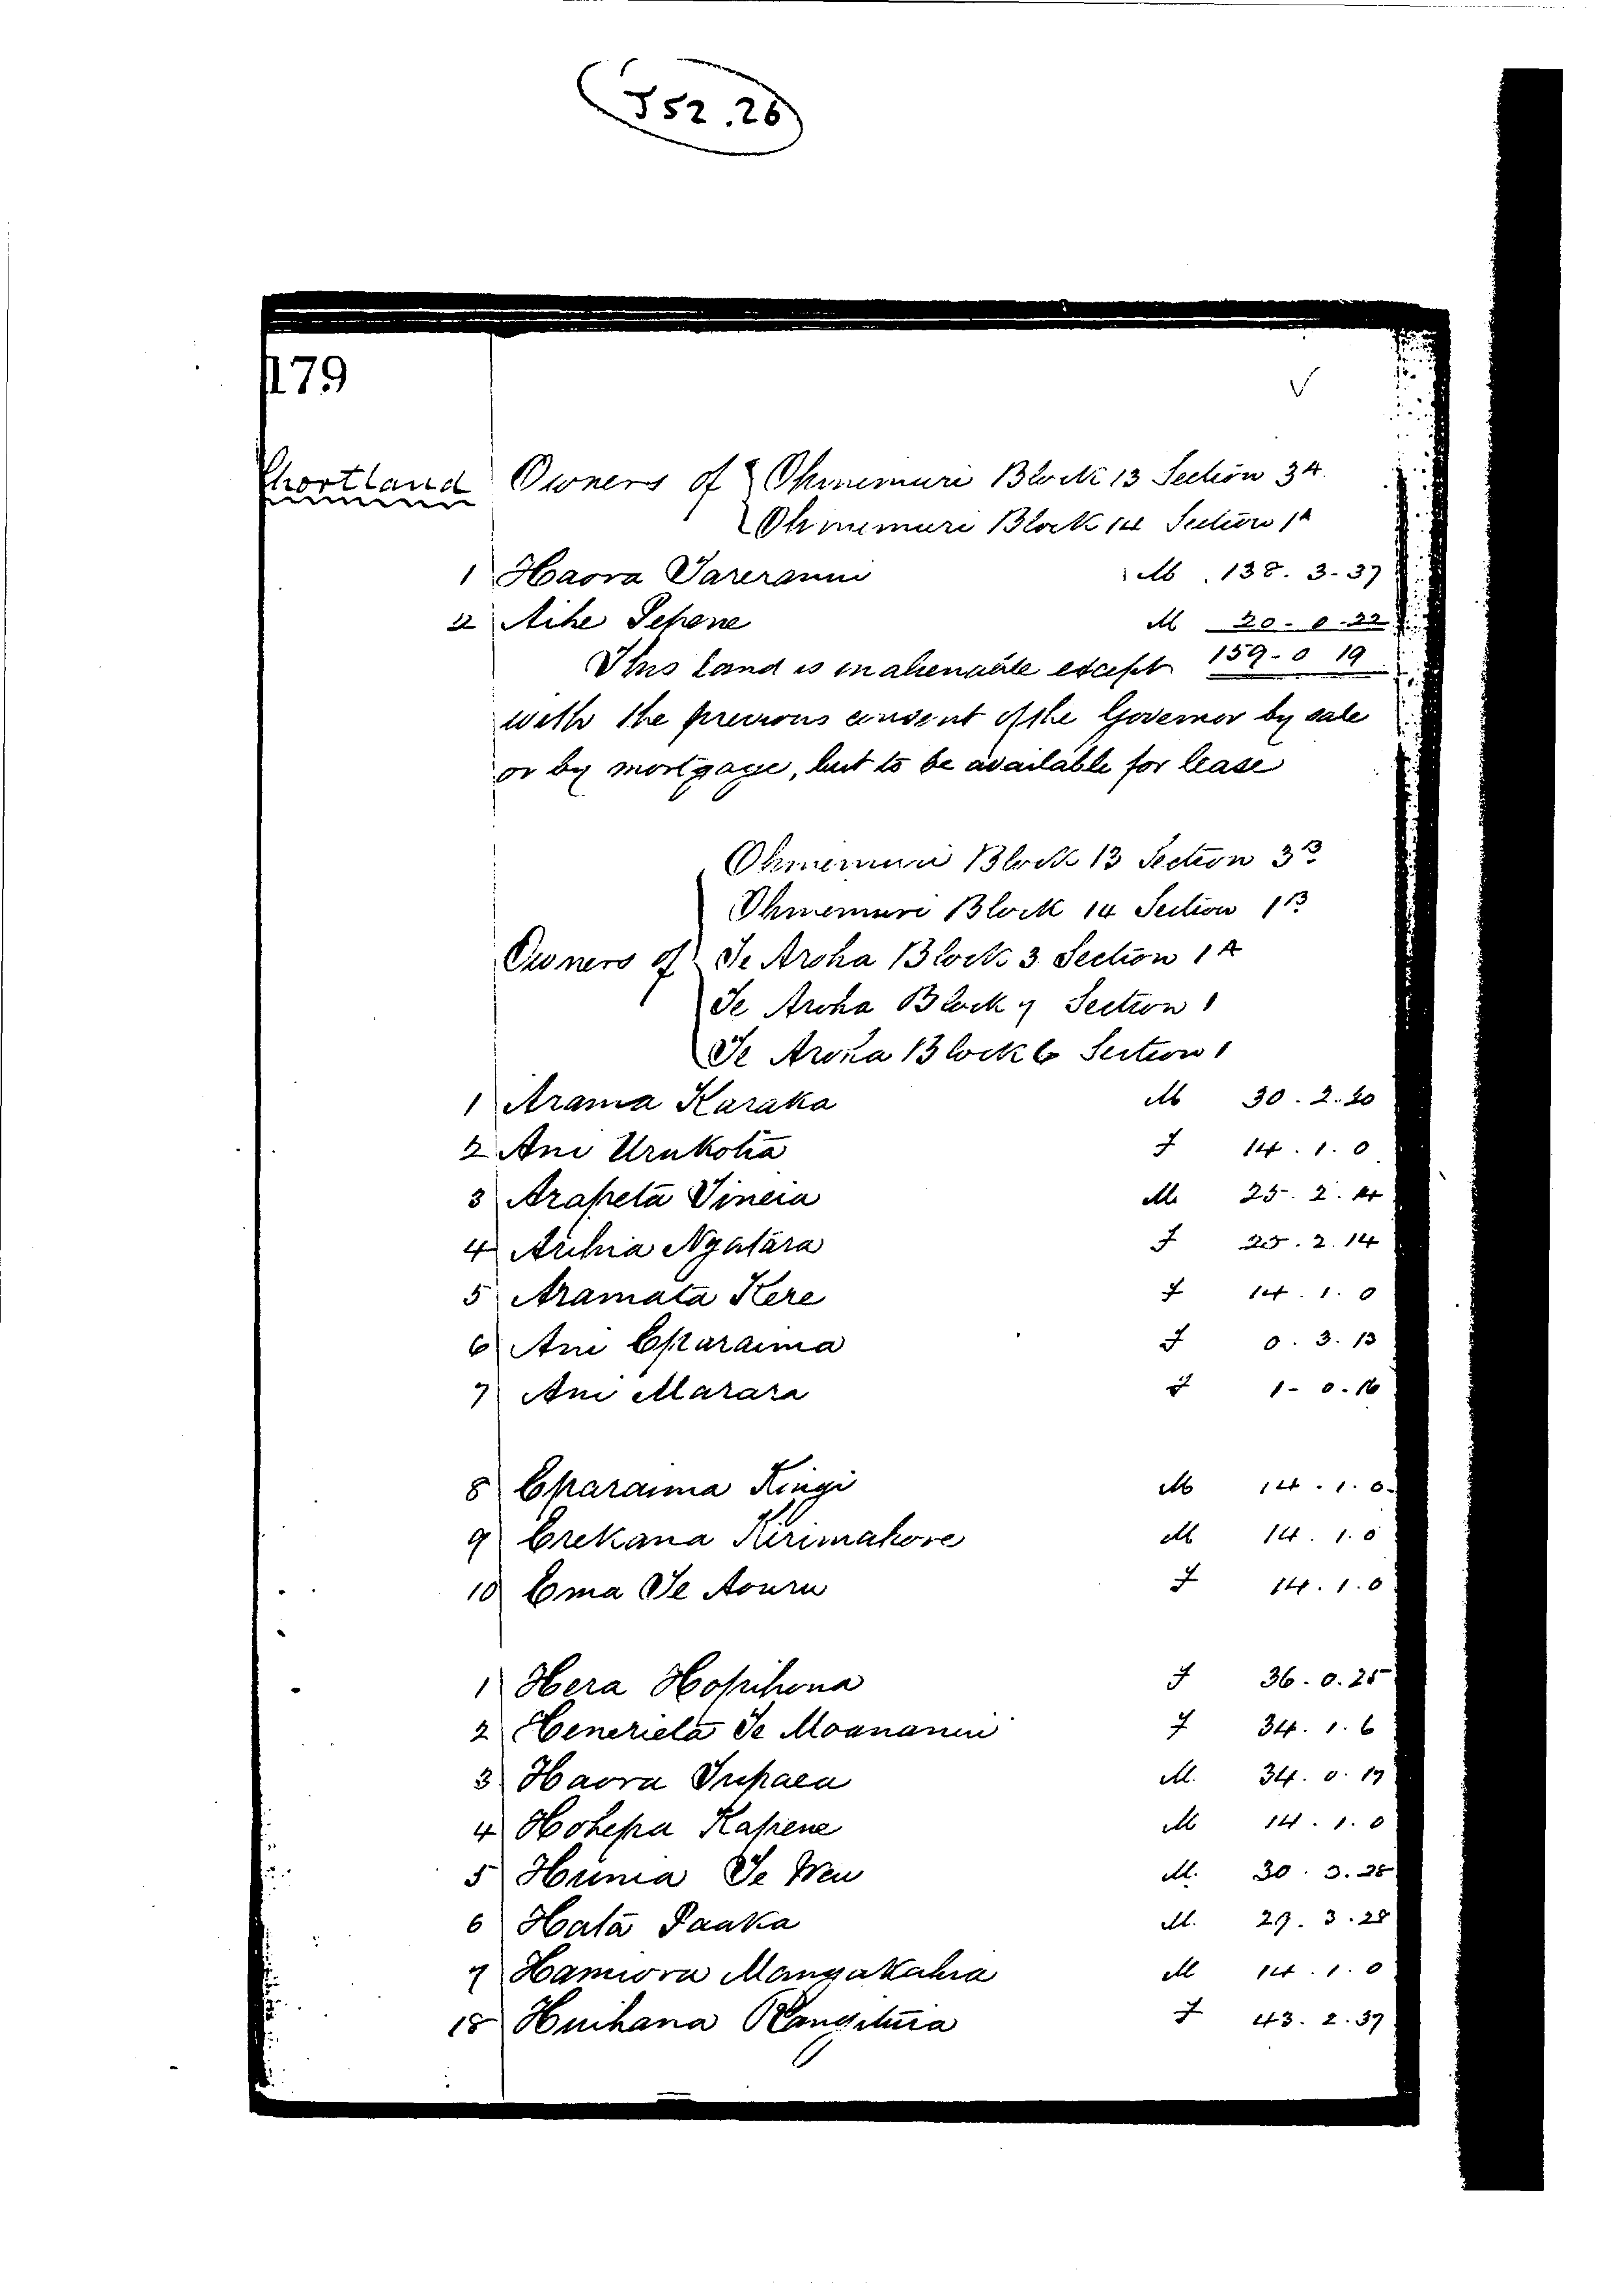 J52.26
179
Shortland
Owners of Ohinemuri Block 13 Section 3A
Ohinemuri Block 14 Section 1A
1 Haora Tareranui M 138. 3. 37
2 Aihe Pepene M 20. 0. 22
This land is inalienable except 159-0 19
with the previous consent of the Governor by sale
or by mortgage, but to be available for lease
Ohinemuri Block 13 Section 3B
Ohinemuri Block 14 Section 1B
Owners of Te Aroha Block 3 Section 1A
Te Aroha Block 7 Section 1
Te Aroha Block 6 Section 1
1 Arama Karaka M 30. 2. 20
2 Ani Urukoha F 14. 1. 0
3 Arapeta Tineia M 25. 2. 14
4 Arihia Ngatara F 25. 2. 14
5 Aramata Kere F 14. 1. 0
6 Ani Eparaima F 0. 3. 13
7 Ani Marara F 1- 0. 16
8 Eparaima Kingi M 14. 1. 0
9 Erekana Kirimahore M 14. 1. 0
10 Ema Te Aouru F 14. 1. 0
1 Hera Hopihona F 36. 0. 25
2 Henerieta Te Moananui F 34. 1. 6
3 Haora Tupaea M. 34. 0. 17
4 Hohepa Kapene M 14. 1. 0
5 Hunia Te Weu M. 30. 3. 28
6 Hata Paaka M. 27. 3. 28
7 Hamiora Mangakahia M 14. 1. 0
18 Huihana Rangituia F 43. 2. 37